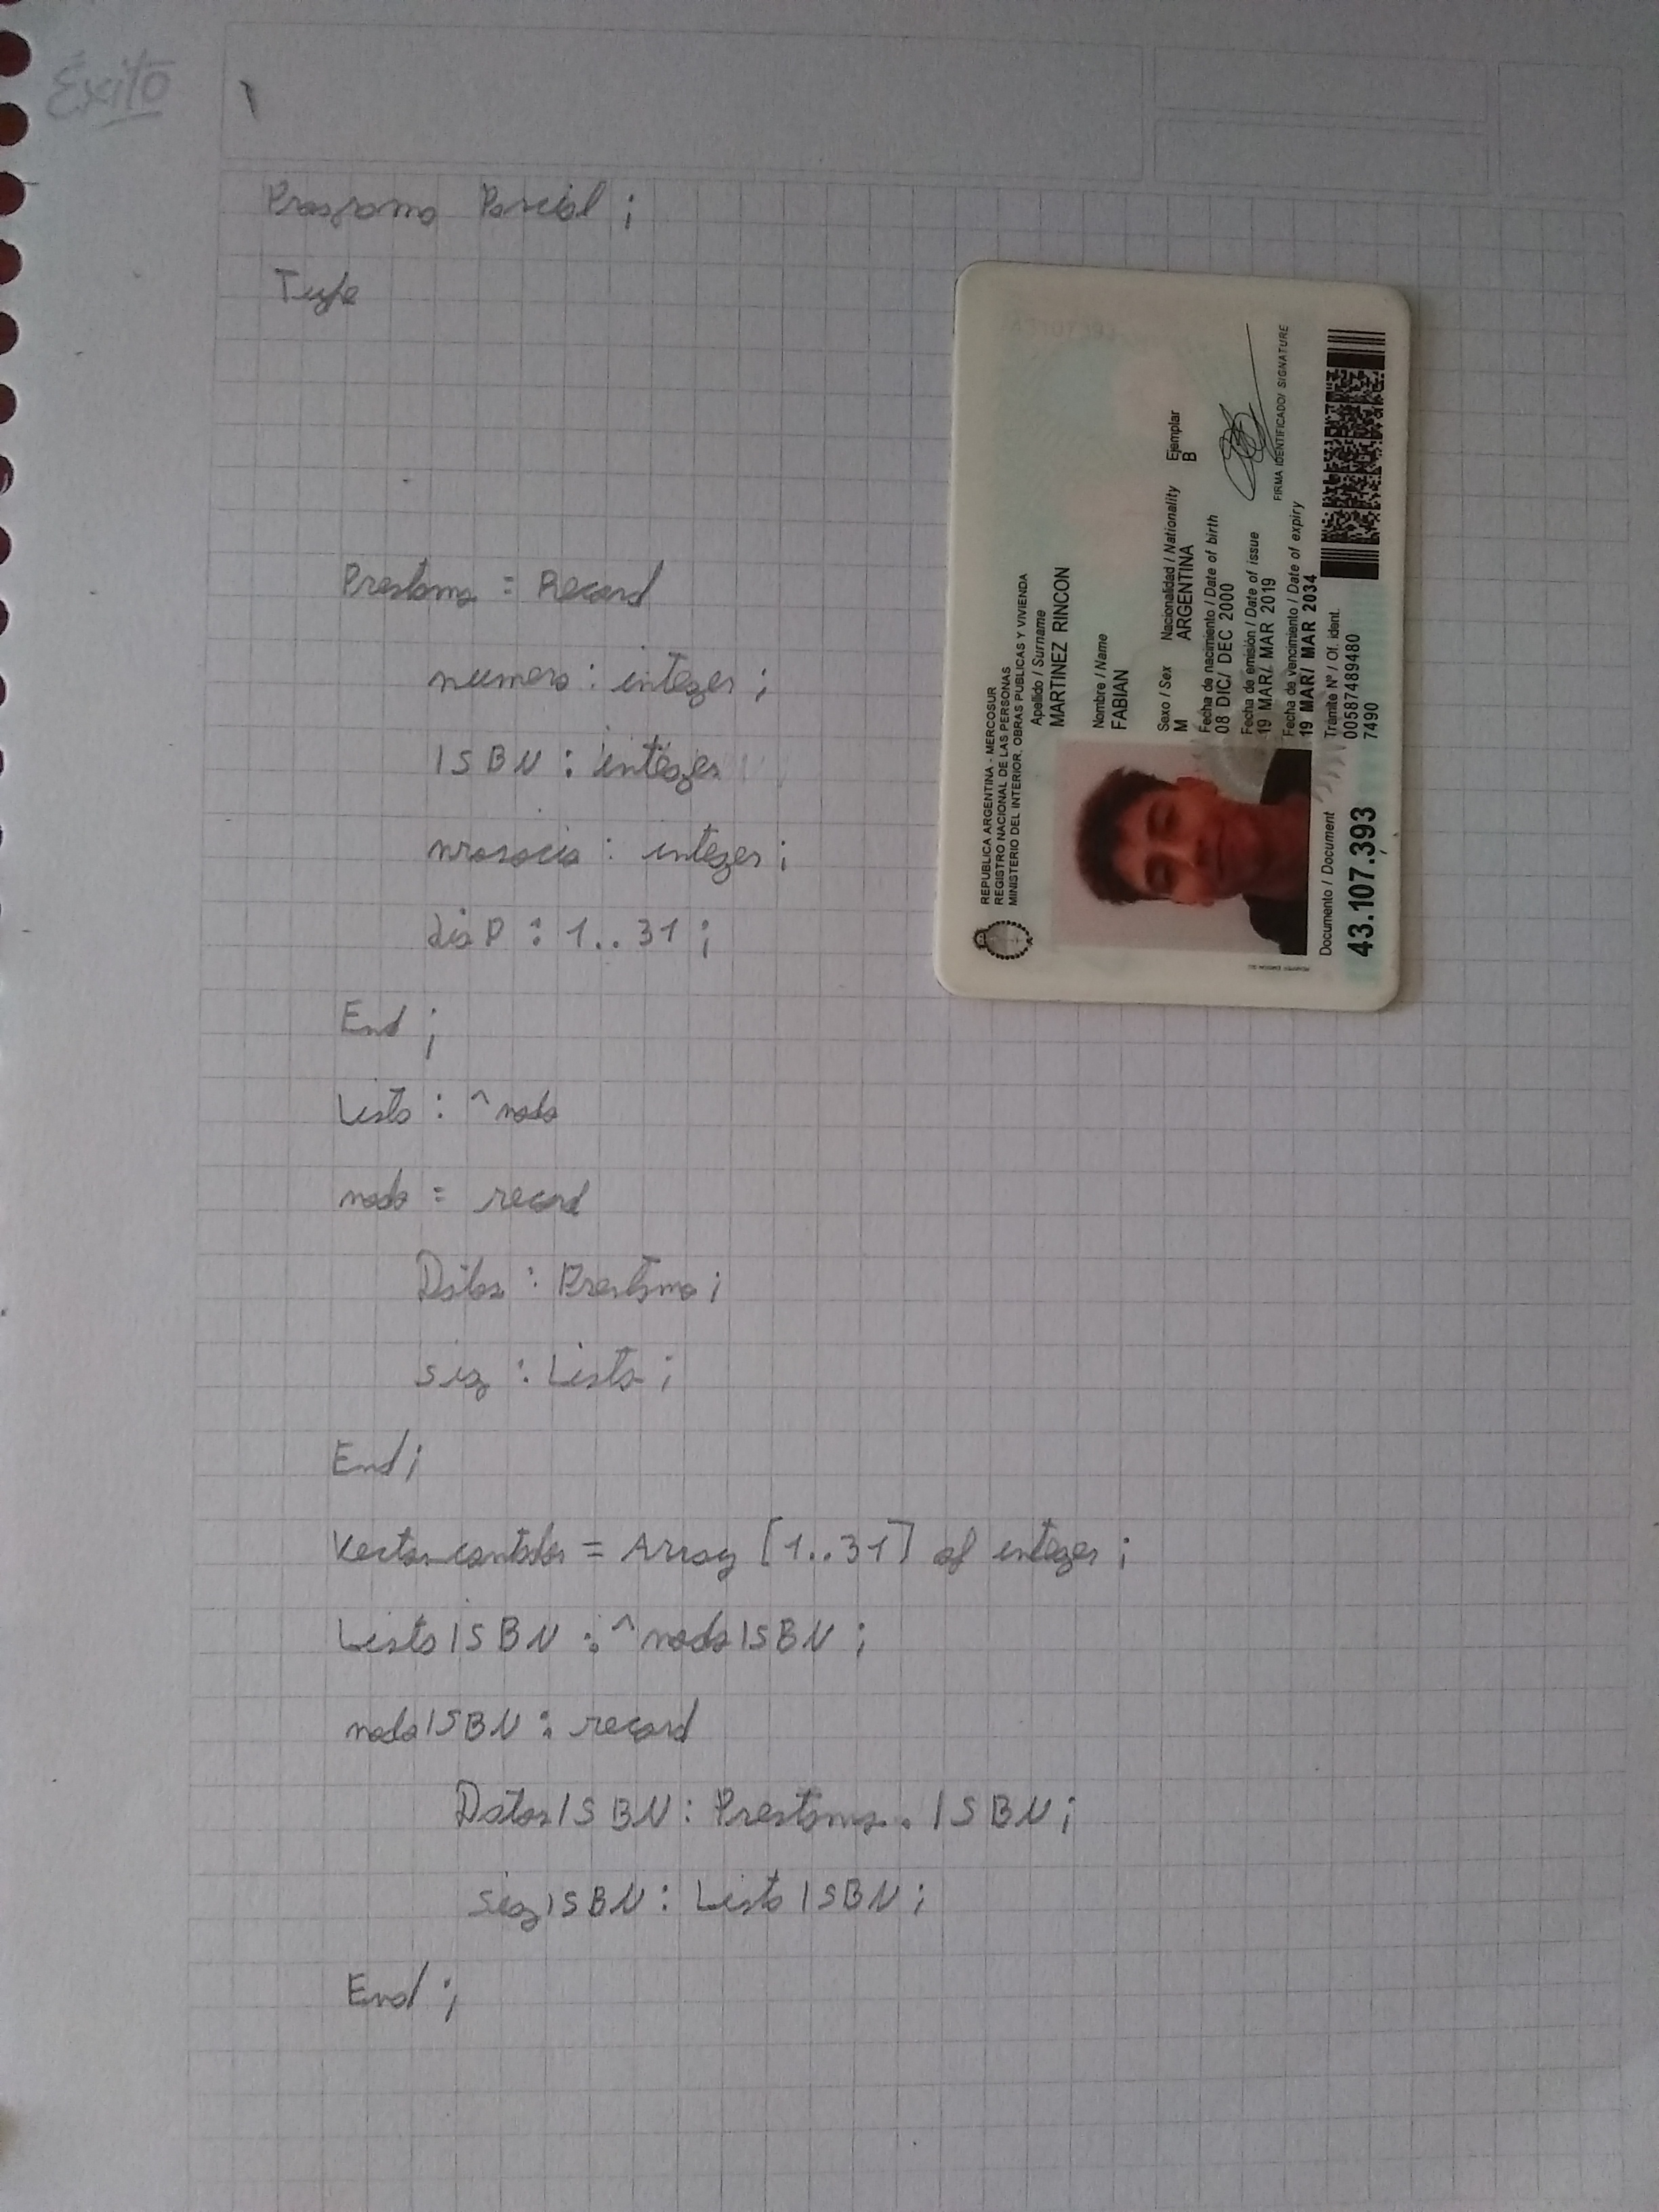 Éxito
Programa Parcial ;
Type
Prestamo = Record
numero : integer ;
ISBN : integer
nrosocio : integer ;
diaP : 1..31 ;
End ;
Lista : ^nodo
nodo = record
Datos : Prestamo ;
sig : Lista ;
End ;
Vector_contador = Array [1..31] of integer ;
ListaISBN : ^nodoISBN ;
nodoISBN : record
DatosISBN : Prestamo . ISBN ;
sigISBN : ListaISBN ;
End ;
REPUBLICA ARGENTINA - MERCOSUR
REGISTRO NACIONAL DE LAS PERSONAS
MINISTERIO DEL INTERIOR, OBRAS PUBLICAS Y VIVIENDA
Apellido / Surname
MARTINEZ RINCON
Nombre / Name
FABIAN
Sexo / Sex Nacionalidad / Nationality Ejemplar
M ARGENTINA B
Fecha de nacimiento / Date of birth
08 DIC/ DEC 2000
Fecha de emisión / Date of issue
19 MAR/ MAR 2019
FIRMA IDENTIFICADO/ SIGNATURE
Fecha de vencimiento / Date of expiry
19 MAR/ MAR 2034
Trámite Nº / Of. ident.
00587489480
7490
Documento / Document
43.107.393